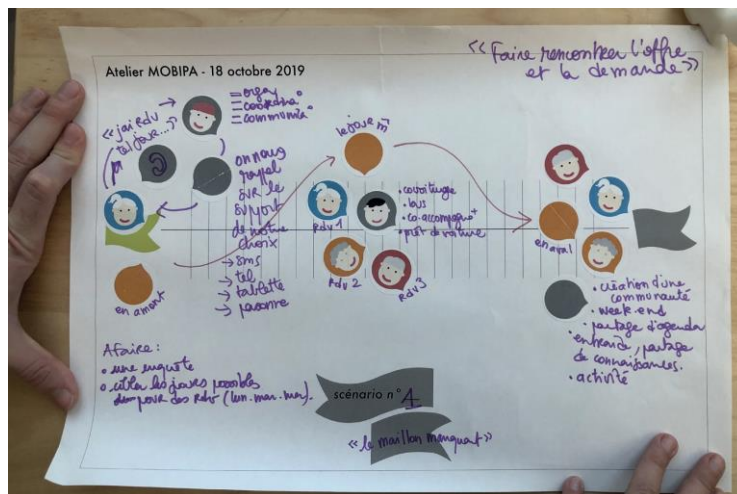 Atelier MOBIPA - 18 octobre 2019
<< Faire rencontrer l'offre
et la demande >>
<< j'ai RdV
tel jour...>>
= orga
= coordina°
= communica°
on nous
rappel
sur le
support
de notre
choix
→ sms
→ tel
→ tablette
→ personne
en amont
le jour m̂
Rdv 1
Rdv 2
Rdv 3
• covoiturage
• bus
• co-accompagnt
• prêt de voiture
en aval
• création d'une
communauté
• week-end
• partage d'agenda
• entraide, partage
de connaissances.
• activité
A faire :
• une enquête
• cibler les jours possibles
pour des Rdv (lun. mar. mer).
scénario n° 4
<< le maillon manquant >>